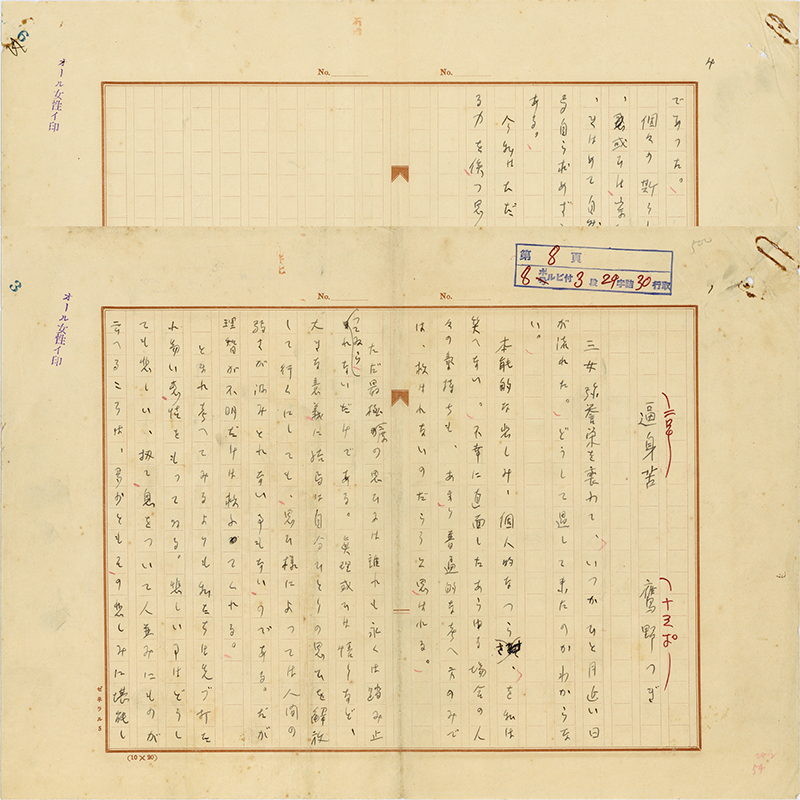 No.
No.
4
6
オール女性イ印
であつた。
個々の斯うし
、きはめて自然
自ら求めず
ある。
今私はただ
る力を俟つ思
第8頁
8ポルビ付3段24字詰30行取
No.
No.
3
オール女性イ印
二号
逼身苦
十五ポ
鷹野つぎ
三女弥養栄を喪れて、いつかひと月近い日
が流れた。どうして過して来たのかわからな
い。
本能的な出しみ、個人的なつら、を私は
笑へない。不幸に直面したあらゆる場合の人
々の氣持ちも、あまり普遍的な考へ方のみで
は、扱はれないのだらうと思はれる。
ただ最極の思ひは誰れも永くは踏み止
つてゐられないだけである。眞理或ひは悟りなど、
大きな意義に結局は自分ひとりの思ひを解放
して行くにしても、思ひ様によつては人間の
弱さが沁みとれない事もないうである。だが
理智が不明だけは救つてくれる。
ともあれ考へてみるよりも私たちは先づ打た
れ易い素性をもつてゐる。悲しい事はどうし
ても悲しい、扨て息をついて人並みにものが
云へるころは、多少ともその悲しみに堪能し
(10×20)